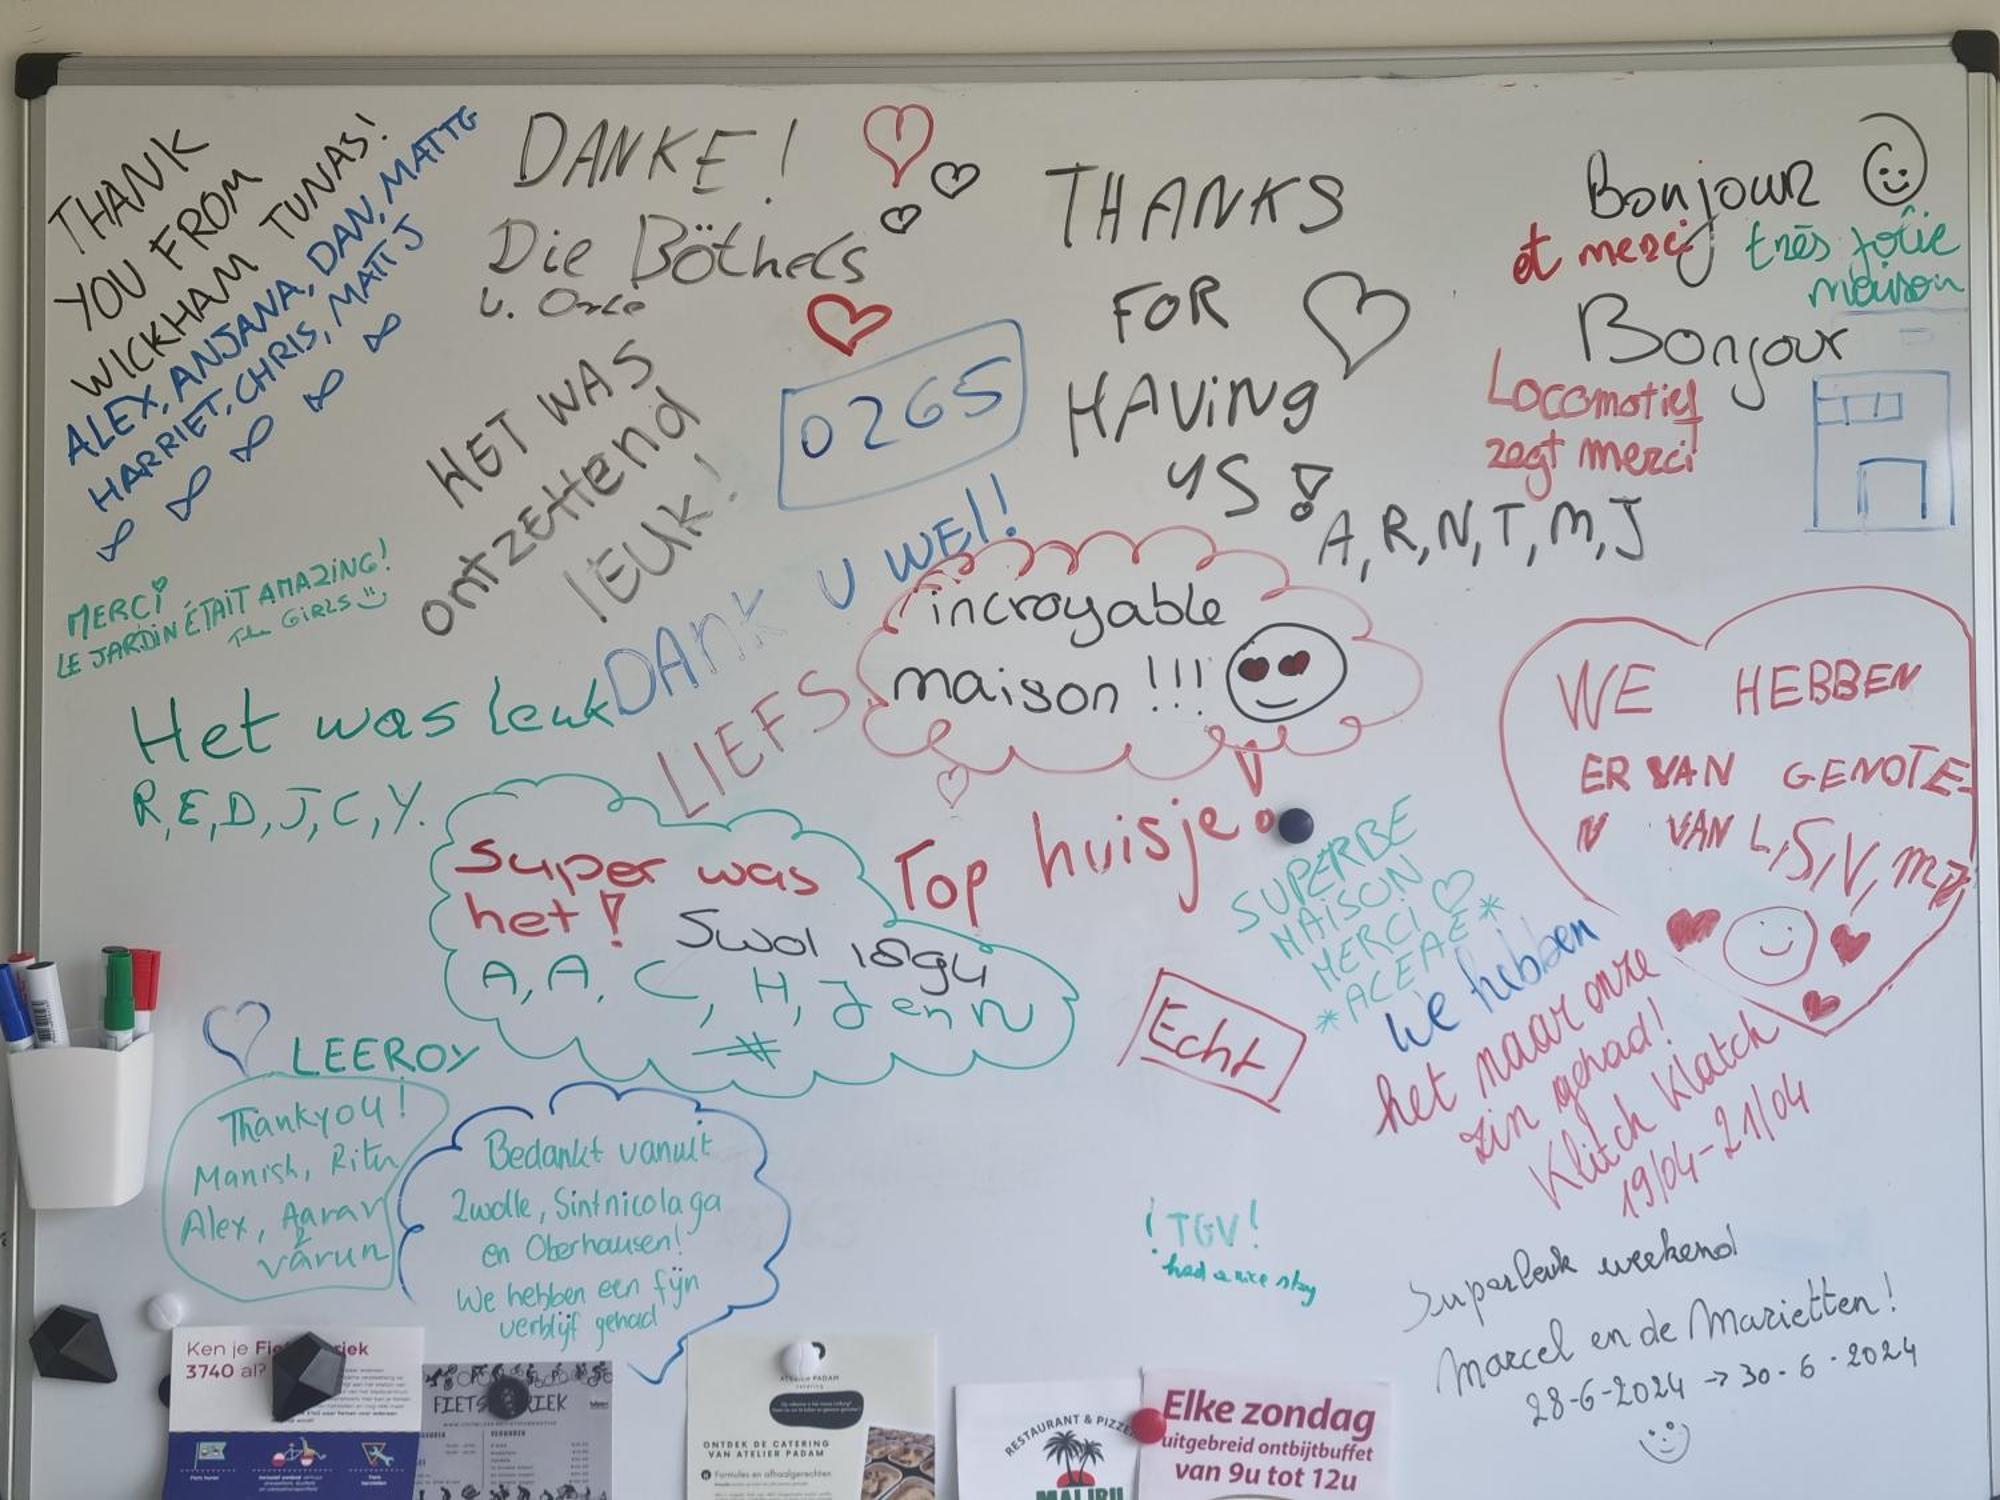 THANK
YOU FROM
WICKHAM TUNAS!
ALEX, ANJANA, DAN, MATTG
HARRIET, CHRIS, MATT J
DANKE!
Die Böthels
u.
THANKS
FOR
HAVING
US!
A, R, N, T, M, J
Bonjour
et merci
très jolie
maison
Bonjour
Locomotief
zegt merci
HET WAS
ontzettend
lEUK!
0265
DANK U WEl!
LIEFS
MERCI
LE JARDIN ÉTAIT AMAZING!
The GIRLS
Het was leuk
R, E, D, J, C, Y.
incroyable
maison !!!
WE HEBBEN
ER VAN GENOTE-
N VAN L, S, V, M
Super was
het!
Swol 18gu
A, A, C, H, J en N
Top huisje!
SUPERBE
MAISON
MERCI
*ACEAE*
Echt
We hebben
het naar onze
zin gehad!
Klitch Klatch
19/04-21/04
LEEROY
Thankyou!
Manish, Ritu
Alex, Aarav
varun
Bedankt vanuit
Zwolle, Sintnicolaga
en Oberhausen!
We hebben een fijn
verblijf gehad
¡TGV!
had a nice stay
Superleuk weekend
Marcel en de Marietten!
28-6-2024 → 30-6-2024
Ken je
3740 al?
ATELIER PADAM
catering
ONTDEK DE CATERING
VAN ATELIER PADAM
Formules en afhaalgerechten
RESTAURANT &
MALIBU
Elke zondag
uitgebreid ontbijtbuffet
van 9u tot 12u